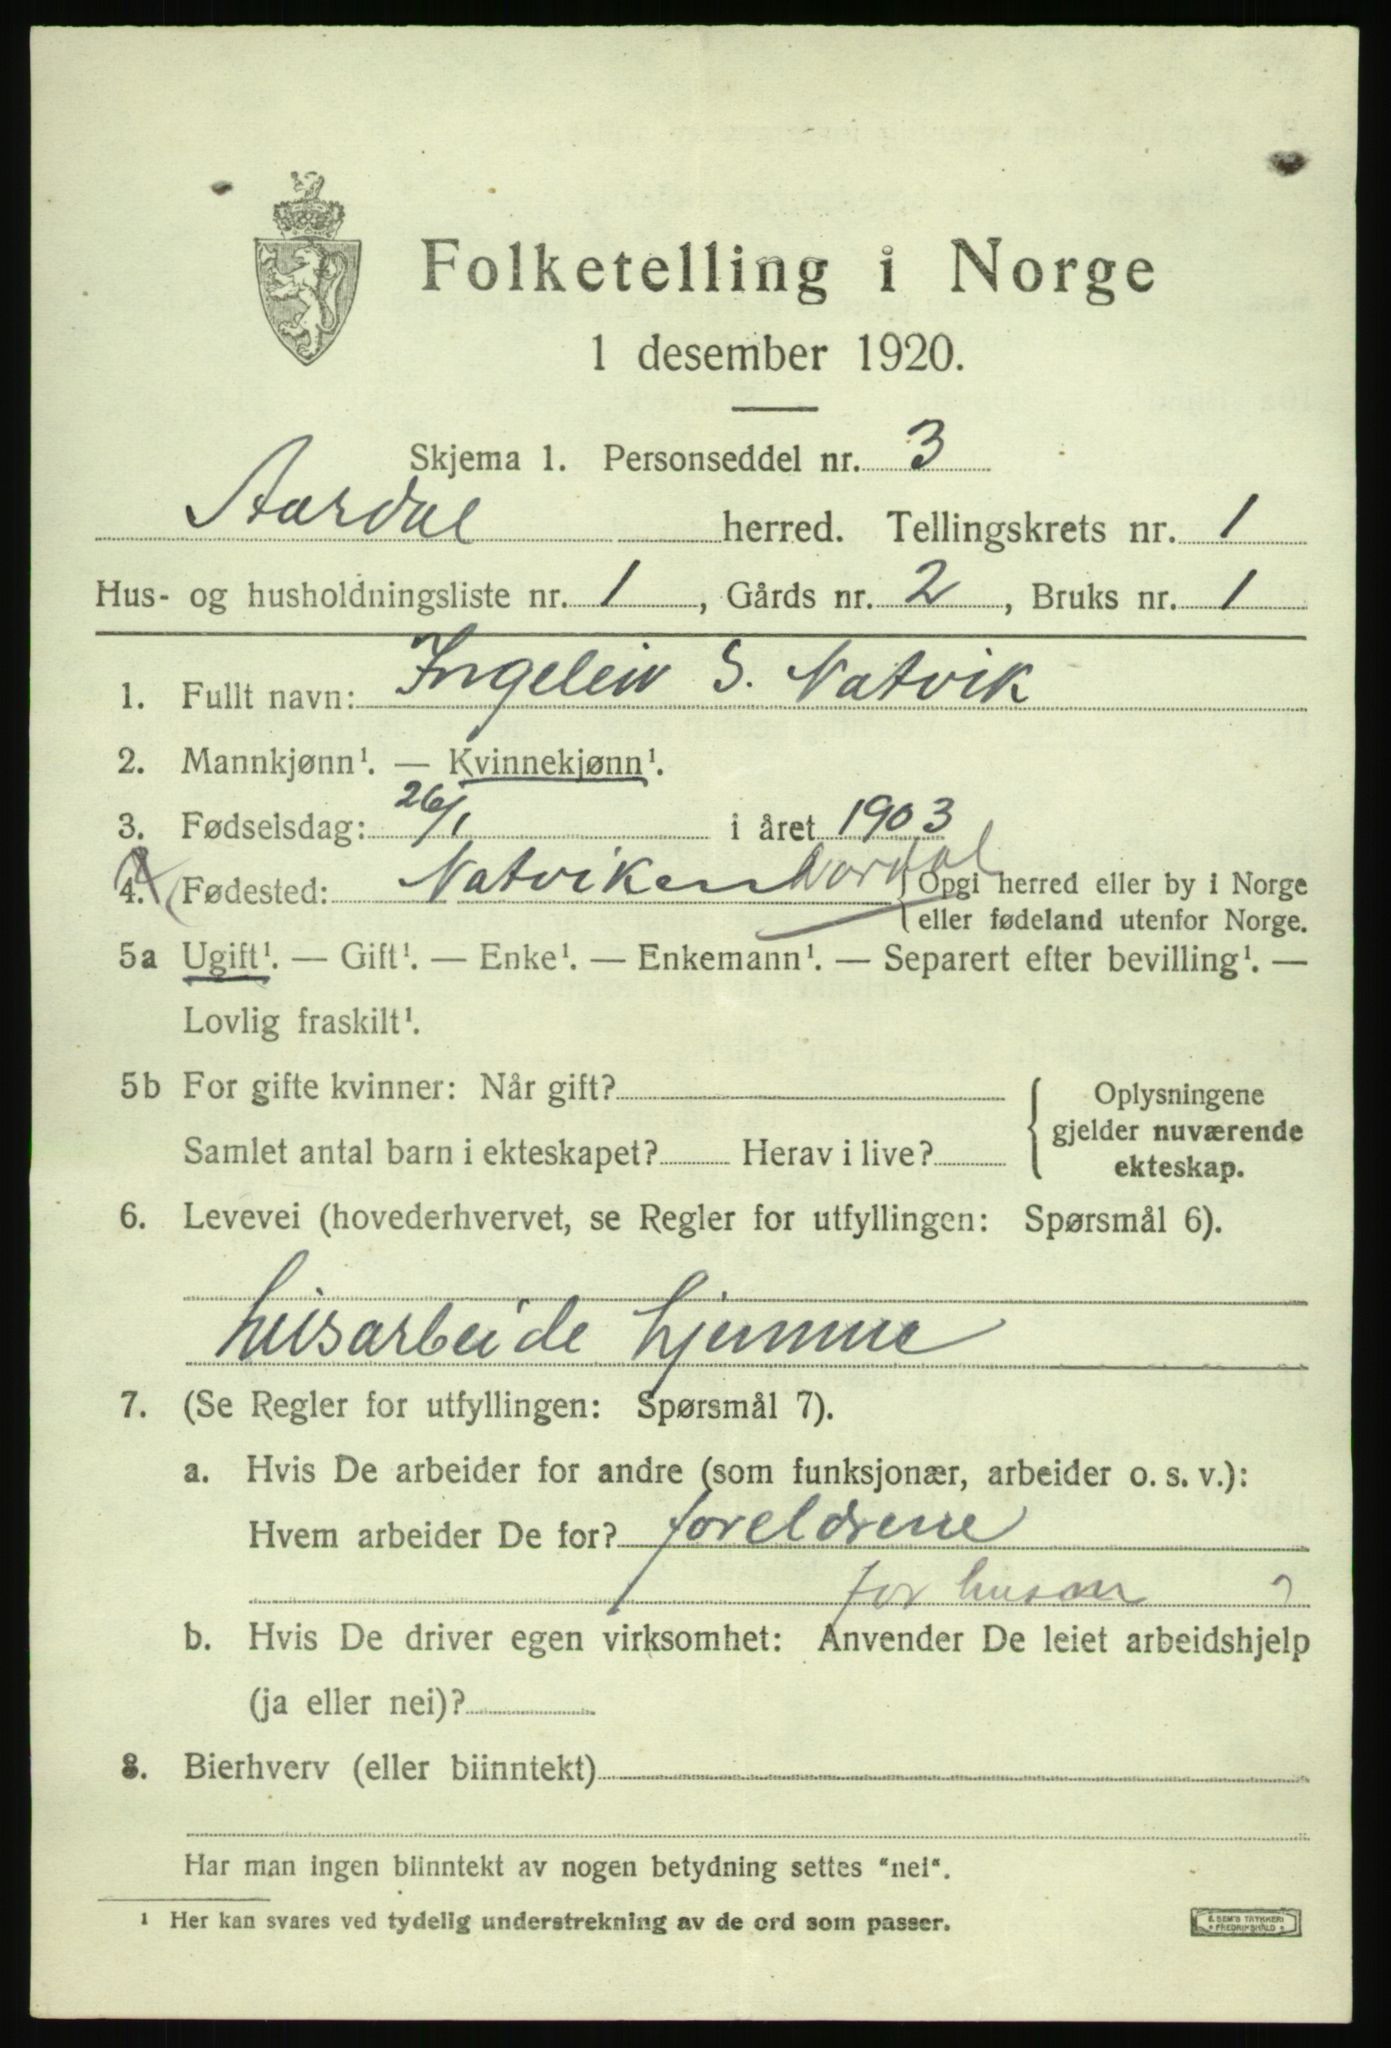 Folketelling i Norge
1 desember 1920.
Skjema 1. Personseddel nr. 3
Aardal herred. Tellingskrets nr. 1
Hus- og husholdningsliste nr. 1, Gårds nr. 2, Bruks nr. 1
1. Fullt navn: Ingeleiv S. Natvik
2. Mannkjønn¹. — Kvinnekjønn¹.
3. Fødselsdag: 26/1 i året 1903
4. Fødested: Natviken Aardal { Opgi herred eller by i Norge
eller fødeland utenfor Norge.
5a Ugift¹. — Gift¹. — Enke¹. — Enkemann¹. — Separert efter bevilling¹. —
Lovlig fraskilt¹.
5b For gifte kvinner: Når gift? { Oplysningene
gjelder nuværende
Samlet antal barn i ekteskapet? Herav i live?
ekteskap.
6. Levevei (hovederhvervet, se Regler for utfyllingen: Spørsmål 6).
husarbeide hjemme
7. (Se Regler for utfyllingen: Spørsmål 7).
a. Hvis De arbeider for andre (som funksjonær, arbeider o. s. v.):
Hvem arbeider De for? foreldrene
for
b. Hvis De driver egen virksomhet: Anvender De leiet arbeidshjelp
(ja eller nei)?
8. Bierhverv (eller biinntekt)
Har man ingen biinntekt av nogen betydning settes "nei".
¹ Her kan svares ved tydelig understrekning av de ord som passer.
E. SEM'S TRYKKERI
FREDRIKSHALD